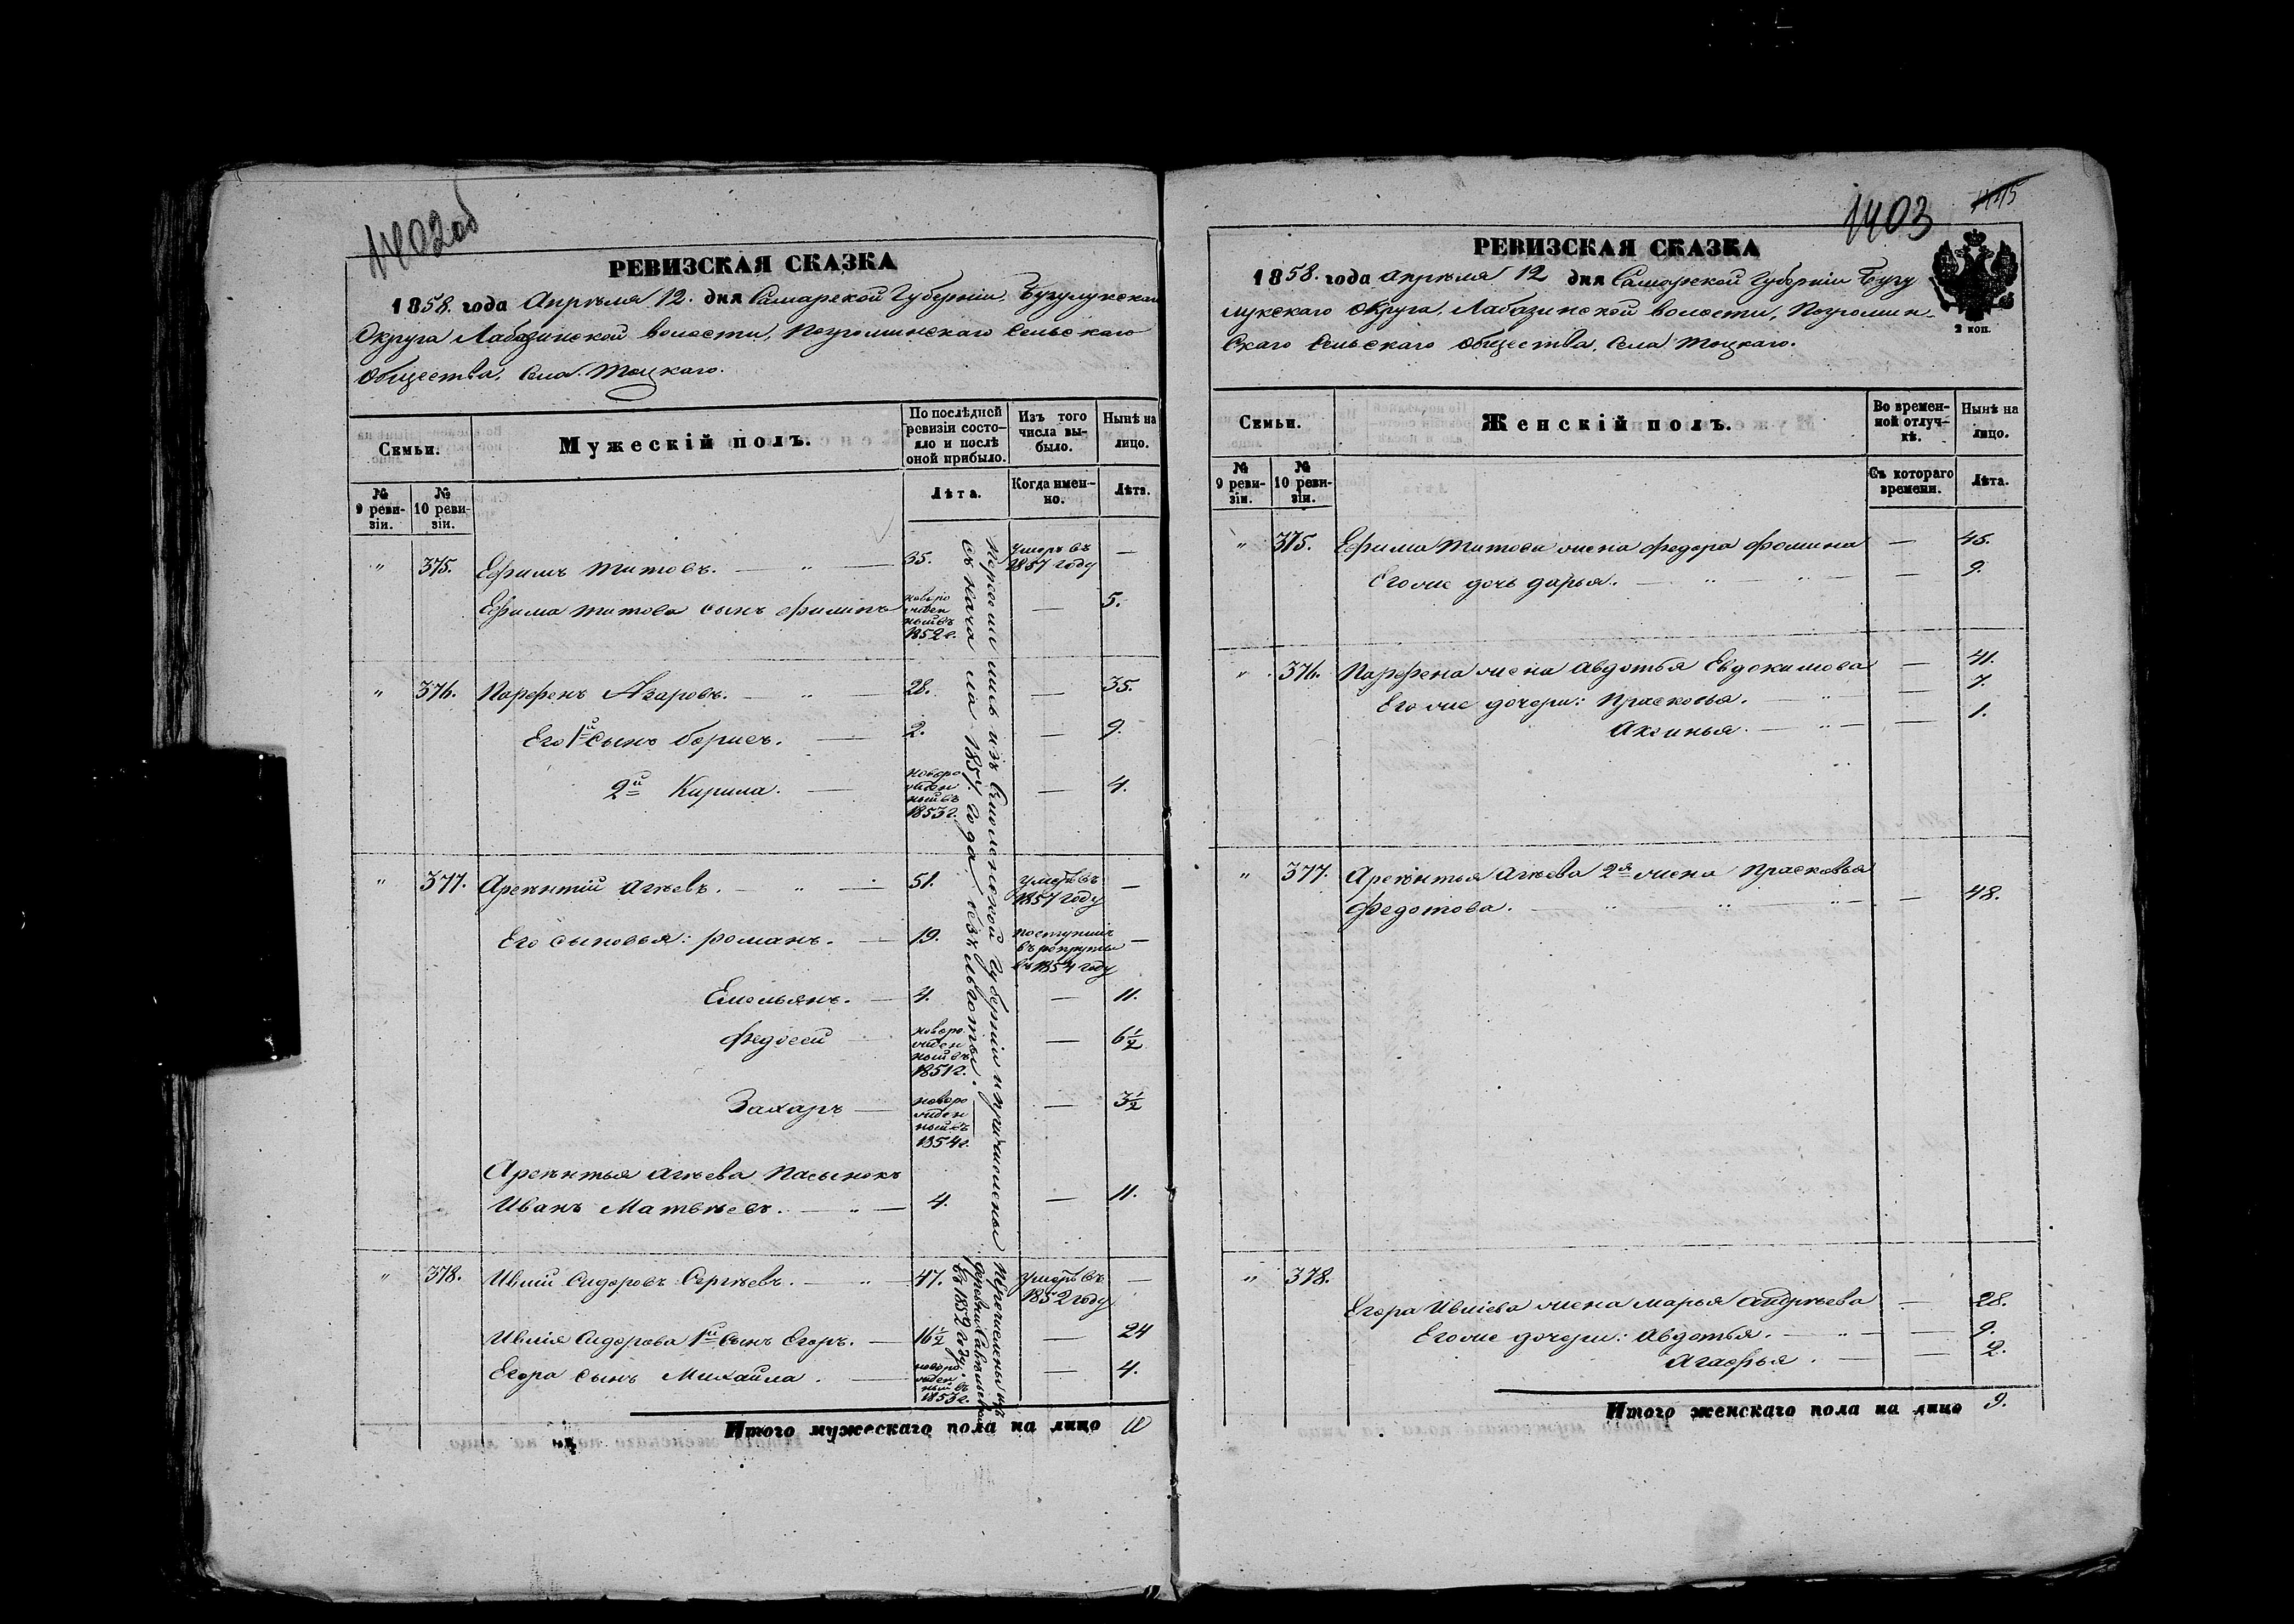 1402об
РЕВИЗСКАЯ СКАЗКА
1858. года Апрѣля 12. дня Самарской Губерніи, Бугулукскаго
Округа Лабазинской волости, Погроминскаго Сельскаго
Общества, Села Тоцкаго.
Семьи.
Мужескій полъ.
По послѣдней ревизіи состояло и послѣ оной прибыло.
Изъ того числа выбыло.
Нынѣ на лицо.
№ 9 ревизіи.
№ 10 ревизіи.
Лѣта.
Когда именно.
Лѣта.
" 375. Ефимъ Титовъ. — " — 35. Умеръ въ 1857 году —
Ефима Титова сынъ Филипъ новорожденный въ 1852 г. — 5.
" 376. Парфенъ Азаровъ. — " — 28. — 35.
Его 1й сынъ Борисъ. — 2. — 9.
2й Кирила. — новорожденный въ 1853 г. — 4.
" 377. Арѣнтій Агѣевъ. — " — 51. Умеръ въ 1857 году —
Его сыновья: Романъ. — 19. поступилъ въ рекруты въ 1854 году —
Емельянъ. — 4. — 11.
Федосей новорожденный въ 1851 г. — 6½
Захаръ — новорожденный въ 1854 г. — 3½
Арѣнтья Агѣева Пасынокъ
Иванъ Матвѣевъ. — " — 4. — 11.
" 378. Ивлій Сидоровъ Сергѣевъ. — " — 47. Умеръ въ 1852 году —
Ивлія Сидорова 1й сынъ Егоръ. — 16½ — 24
Егора сынъ Михайла. — новорожденный въ 1853 г. — 4.
Переселились изъ Смоленской губерніи и причислены
съ начала 1857 года, безъ льготы.
Перечислены изъ
деревни
въ 1852 году.
Итого мужескаго пола на лицо 10
1403
РЕВИЗСКАЯ СКАЗКА
1858. года Апрѣля 12 дня Самарской Губерніи Бугу
лукскаго Округа, Лабазинской волости, Погромин-
скаго Сельскаго Общества, Села Тоцкаго.
2 коп.
Семьи.
Женскій полъ.
Во временной отлучкѣ.
Нынѣ на лицо.
№ 9 ревизіи.
№ 10 ревизіи.
Съ котораго времени.
Лѣта.
" 375. Ефима Титова жена Федора Фомина — 45.
Егоже дочь Дарья. — " — " — 9.
" 376. Парфена жена Авдотья Евдокимова — 41.
Егоже дочери: Прасковья. — " — 7.
Аксинья. — " — 1.
" 377. Арѣнтья Агѣева 2я жена Прасковья
Федотова. — " — " — " — 48.
" 378.
Егора Ивліева жена Марья Андрѣева — 28.
Егоже дочери: Авдотья. — " — 9.
Агафья. — 2.
Итого женскаго пола на лицо 9.